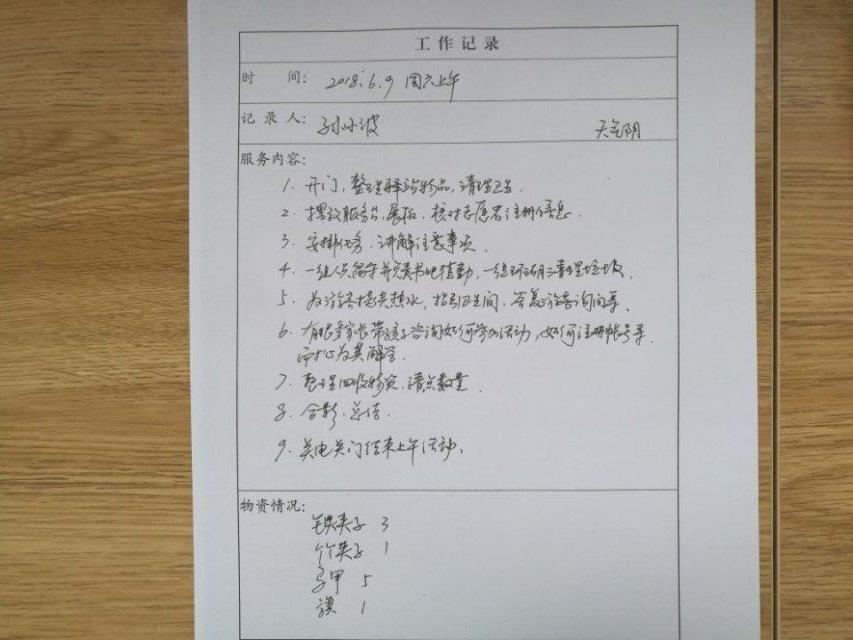 工作记录
时 间: 2018.6.9 周六上午
记录人: 孙小波 天气阴
服务内容:
1. 开门,整理驿站物品,清理卫生.
2. 摆放服务台、展板、核对志愿者注册信息.
3. 安排任务、讲解注意事项.
4. 一组人员留守并完成执勤,一组环湖清理垃圾.
5. 为游客提供热水,指引卫生间,答复游客询问等.
6. 有很多家长带孩子咨询如何参加活动,如何注册帐号等.
耐心为其解答.
7. 整理回收物资、清点数量.
8. 合影、总结.
9. 关电关门结束上午活动.
物资情况:
铁夹子 3
竹夹子 1
马甲 5
旗 1